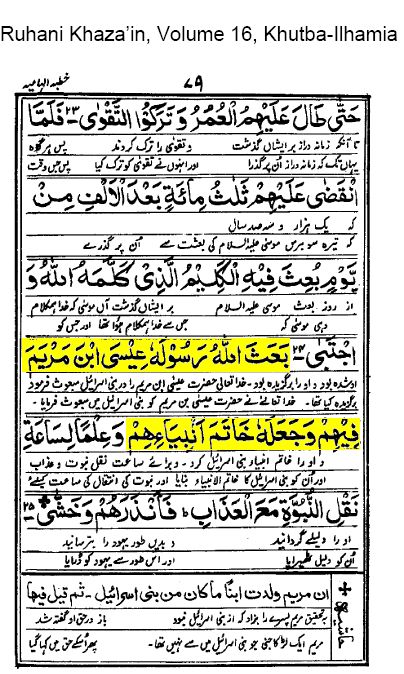 Ruhani Khaza’in, Volume 16, Khutba-Ilhamia
خطبه الهامیه
۷۹
حَتّٰی طَالَ عَلَیْهِمُ الْعُمُرُ وَ تَرَکُوا التَّقْوٰی ۲۳ فَلَمَّا
تا آنکه زمانه دراز بر ایشان گذشت و تقوی را ترک کردند پس هرگاه
یہاں تک کہ زمانہ دراز اُن پر گذرا اور انہوں نے تقوی کو ترک کیا پس جس وقت
انْقَضٰی عَلَیْهِمْ ثَلٰثُ مِائَةٍ بَعْدَ الْاَلْفِ مِنْ
که یک ہزار و سه صد سال
کہ تیرہ سو برس موسیٰ علیہ السلام کی بعثت سے اُن پر گذرے
یَوْمٍ بُعِثَ فِیْهِ الْکَلِیْمُ الَّذِیْ کَلَّمَهُ اللّٰهُ وَ
از روز بعثت موسیٰ علیه السلام بر ایشان گذشت آں موسیٰ که خدا همکلام
وہی موسیٰ کہ جس سے خدا ہمکلام ہوا تھا اور جس کو
اجْتَبٰی ۲۴ بَعَثَ اللّٰهُ رَسُوْلَهٗ عِیْسَی ابْنَ مَرْیَمَ
او شده بود و او را برگزیده بود۔ خدا تعالیٰ حضرت عیسیٰ ابن مریم را در بنی اسرائیل مبعوث فرمود
برگزیدہ کیا تھا۔ خدا تعالےٰ نے حضرت عیسیٰ بن مریم کو بنی اسرائیل میں مبعوث فرمایا۔
فِیْهِمْ وَجَعَلَهٗ خَاتَمَ اَنْبِیَاءِهِمْ وَعِلْمًا لِّسَاعَةِ
و او را خاتم انبیاء بنی اسرائیل کرد۔ و برائے ساعت نقل نبوت و عذاب
اور اُن کو بنی اسرائیل کا خاتم الانبیاء بنایا اور نبوت کی انتقال کی ساعت کیلئے
نَقْلِ النُّبُوَّةِ مَعَ الْعَذَابِ، فَاَنْذَرَهُمْ وَخَشّٰی ۲۵
او را دلیلے گردانید و بدیں طور یہود را بترسانید
اُن کو دلیل ٹھہرایا اور اس طور سے یہود کو ڈرایا
ان مریم ولدت ابنًا ما کان من بنی اسرائیل ۔ ثم قیل فیها
بتحقیق مریم پسرے را بزاد که از بنی اسرائیل نبود باز در حق او گفته شد
مریم ایک لڑکا جنی جو بنی اسرائیل میں سے نہیں تھا۔ پھر اُسکے حق میں کہا گیا
حاشیه